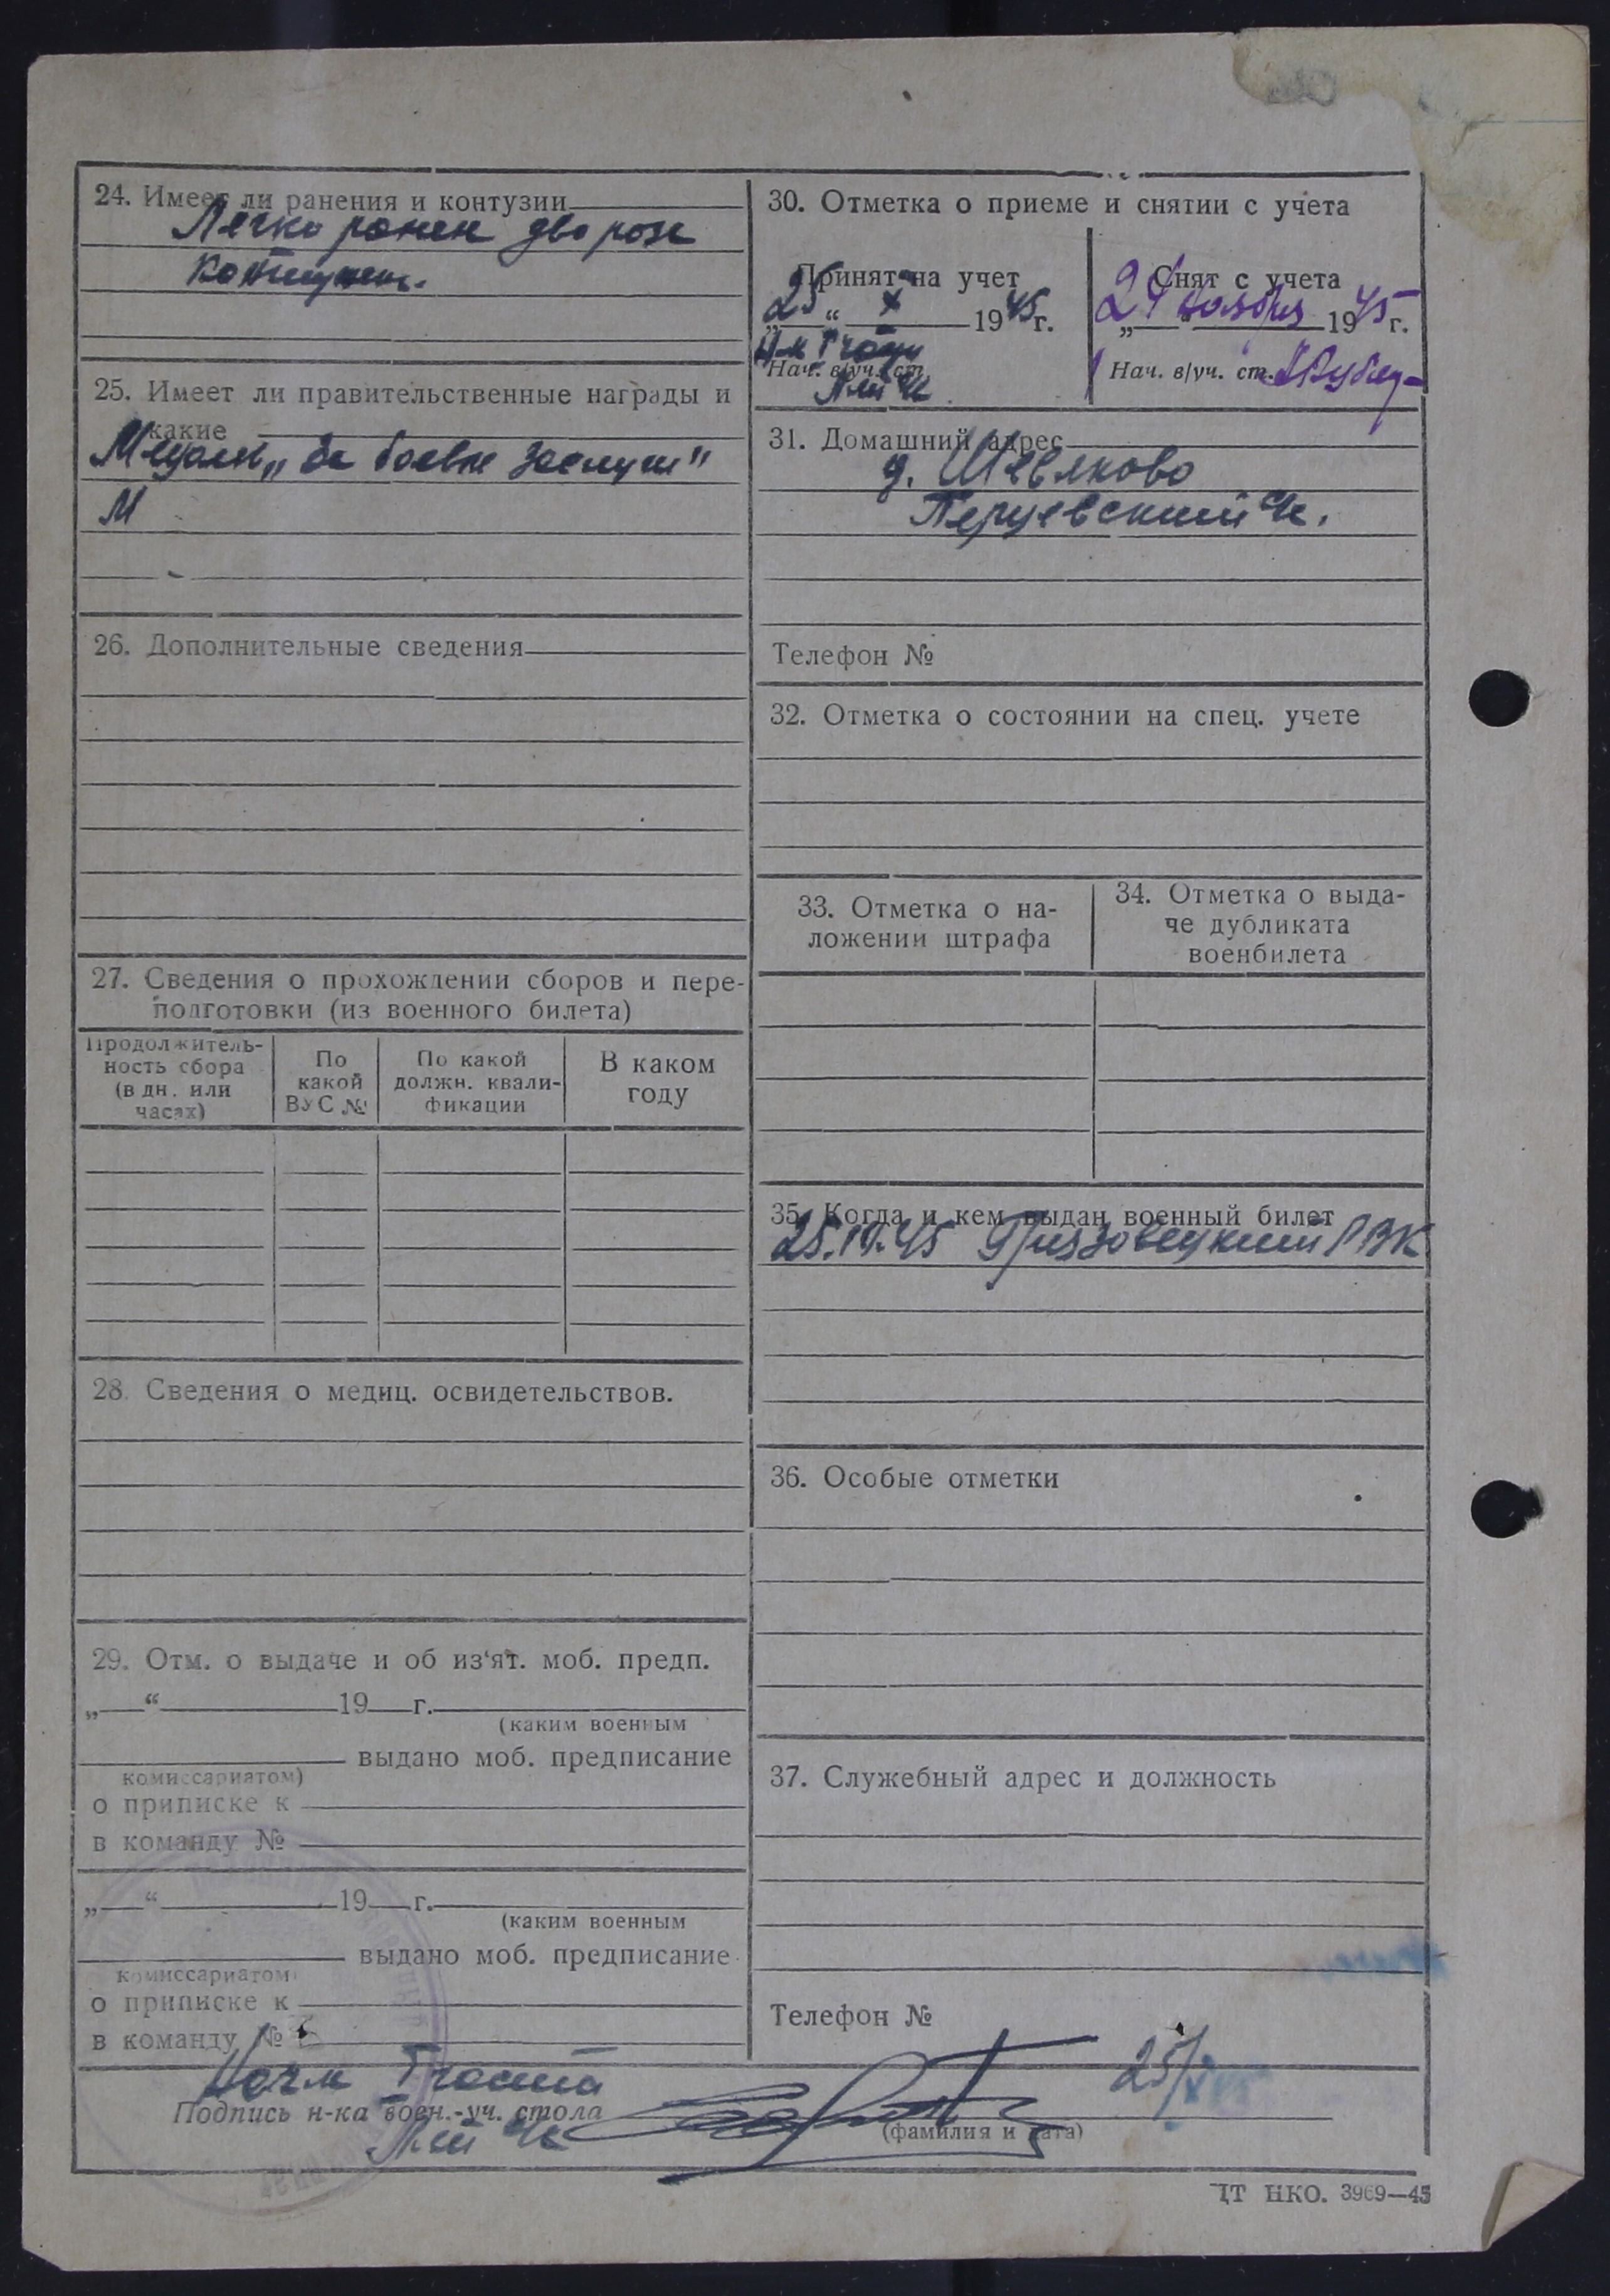 24. Имеет ли ранения и контузии
Легко ранен два раза
Контужен.
25. Имеет ли правительственные награды и
какие
Медаль „За боевые заслуги"
М
26. Дополнительные сведения
27. Сведения о прохождении сборов и пере-
подготовки (из военного билета)
Продолжитель-
ность сбора
(в дн. или
часах)
По
какой
ВУС №
По какой
должн. квали-
фикации
В каком
году
28. Сведения о медиц. освидетельствов.
29. Отм. о выдаче и об из‘ят. моб. предп.
„ “ 19 г.
(каким военным
выдано моб. предписание
комиссариатом)
о приписке к
в команду №
„ “ 19 г.
(каким военным
выдано моб. предписание
комиссариатом)
о приписке к
в команду №
30. Отметка о приеме и снятии с учета
Принят на учет
„25“ X 1945 г.
Нач. в/уч. ст.
Снят с учета
„24“ ноября 1945 г.
Нач. в/уч. ст.
31. Домашний адрес
д. Шевяково
Перцевский
Телефон №
32. Отметка о состоянии на спец. учете
33. Отметка о на-
ложении штрафа
34. Отметка о выда-
че дубликата
военбилета
35. Когда и кем выдан военный билет
25.10.45 Грязовецкий РВК
36. Особые отметки
37. Служебный адрес и должность
Телефон №
25/X
Подпись н-ка воен.-уч. стола
(фамилия и дата)
ЦТ НКО. 3969—45